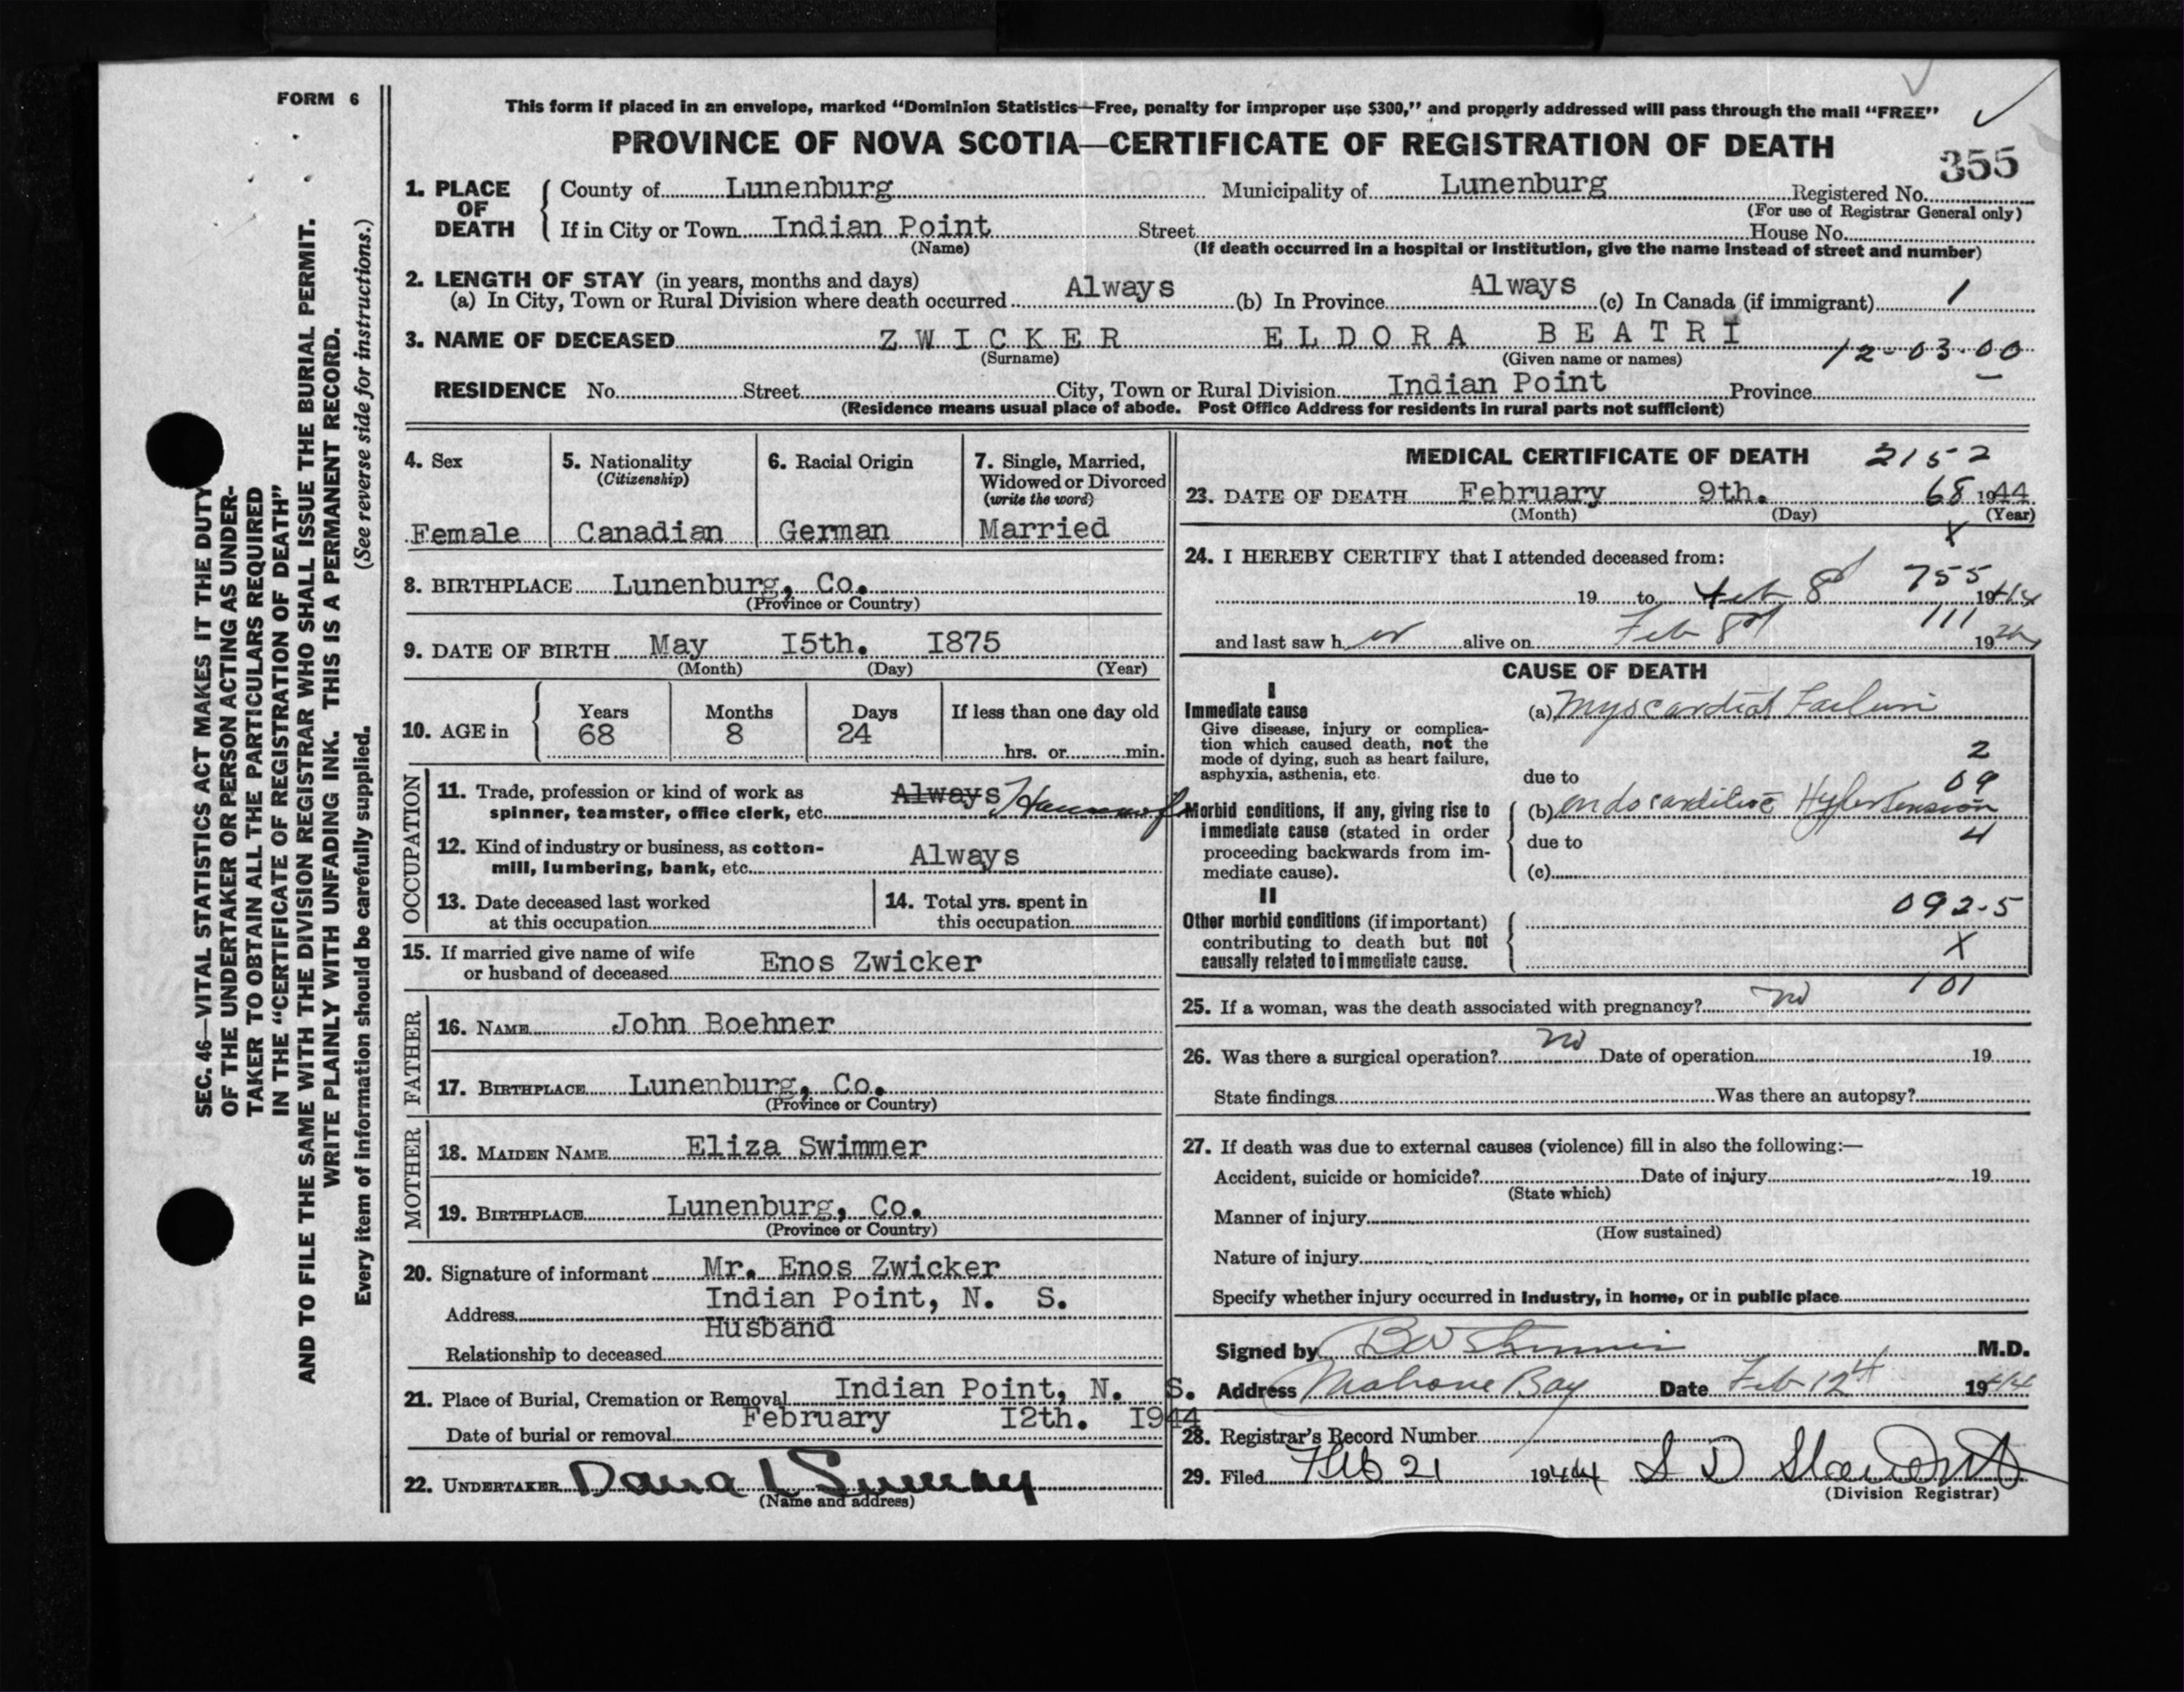 FORM 6
This form if placed in an envelope, marked "Dominion Statistics—Free, penalty for improper use $300," and properly addressed will pass through the mail "FREE"
PROVINCE OF NOVA SCOTIA—CERTIFICATE OF REGISTRATION OF DEATH
355
1. PLACE OF DEATH
County of Lunenburg Municipality of Lunenburg Registered No.
(For use of Registrar General only)
If in City or Town Indian Point Street House No.
(Name) (If death occurred in a hospital or institution, give the name instead of street and number)
2. LENGTH OF STAY (in years, months and days)
(a) In City, Town or Rural Division where death occurred Always (b) In Province Always (c) In Canada (if immigrant) 1
3. NAME OF DECEASED ZWICKER ELDORA BEATRI 12-03-00
(Surname) (Given name or names)
RESIDENCE No. Street City, Town or Rural Division Indian Point Province
(Residence means usual place of abode. Post Office Address for residents in rural parts not sufficient)
4. Sex
Female
5. Nationality
(Citizenship)
Canadian
6. Racial Origin
German
7. Single, Married, Widowed or Divorced
(write the word)
Married
8. BIRTHPLACE Lunenburg, Co.
(Province or Country)
9. DATE OF BIRTH May I5th. I875
(Month) (Day) (Year)
10. AGE in
Years Months Days If less than one day old
68 8 24 hrs. or min.
OCCUPATION
11. Trade, profession or kind of work as Always
spinner, teamster, office clerk, etc.
12. Kind of industry or business, as cotton-
mill, lumbering, bank, etc. Always
13. Date deceased last worked
at this occupation
14. Total yrs. spent in
this occupation
15. If married give name of wife
or husband of deceased Enos Zwicker
FATHER
16. NAME John Boehner
17. BIRTHPLACE Lunenburg, Co.
(Province or Country)
MOTHER
18. MAIDEN NAME Eliza Swimmer
19. BIRTHPLACE Lunenburg, Co.
(Province or Country)
20. Signature of informant Mr. Enos Zwicker
Address Indian Point, N. S.
Relationship to deceased Husband
21. Place of Burial, Cremation or Removal Indian Point, N. S.
Date of burial or removal February I2th. I944
22. UNDERTAKER
(Name and address)
MEDICAL CERTIFICATE OF DEATH 2152
23. DATE OF DEATH February 9th. 68 1944
(Month) (Day) (Year)
X
24. I HEREBY CERTIFY that I attended deceased from:
755
19 to Feb 8 1944
111
and last saw her alive on Feb 8 19
CAUSE OF DEATH
I
Immediate cause
Give disease, injury or complica-
tion which caused death, not the
mode of dying, such as heart failure,
asphyxia, asthenia, etc.
(a) Myocardial Failure
2
due to 09
Morbid conditions, if any, giving rise to
immediate cause (stated in order
proceeding backwards from im-
mediate cause).
(b) Hypertension
due to 4
(c)
II
Other morbid conditions (if important)
contributing to death but not
causally related to immediate cause.
092-5
X
101
25. If a woman, was the death associated with pregnancy? no
26. Was there a surgical operation? no Date of operation 19
State findings Was there an autopsy?
27. If death was due to external causes (violence) fill in also the following:—
Accident, suicide or homicide? Date of injury 19
(State which)
Manner of injury
(How sustained)
Nature of injury
Specify whether injury occurred in industry, in home, or in public place
Signed by M.D.
Address Mahone Bay Date Feb 12th 1944
28. Registrar's Record Number
29. Filed Feb 21 1944 S D
(Division Registrar)
SEC. 46—VITAL STATISTICS ACT MAKES IT THE DUTY
OF THE UNDERTAKER OR PERSON ACTING AS UNDER-
TAKER TO OBTAIN ALL THE PARTICULARS REQUIRED
IN THE "CERTIFICATE OF REGISTRATION OF DEATH"
AND TO FILE THE SAME WITH THE DIVISION REGISTRAR WHO SHALL ISSUE THE BURIAL PERMIT.
WRITE PLAINLY WITH UNFADING INK. THIS IS A PERMANENT RECORD.
Every item of information should be carefully supplied. (See reverse side for instructions.)